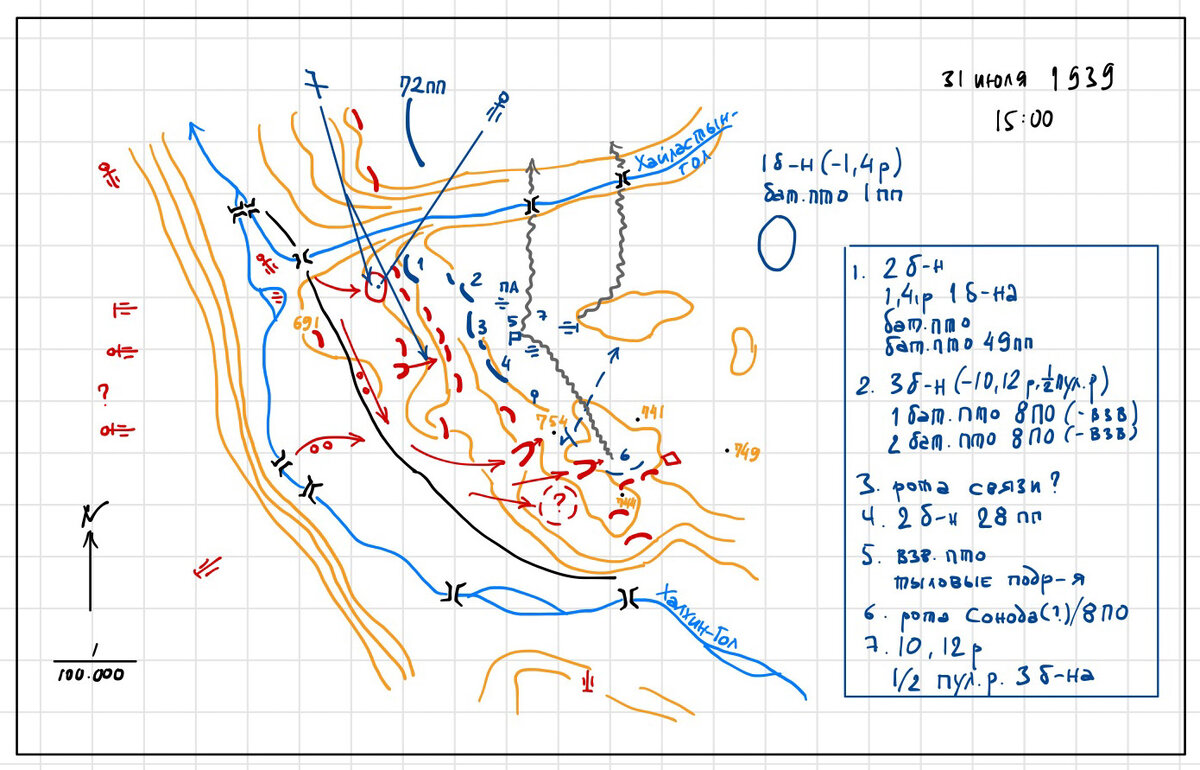 31 июля 1939
15:00
72пп
Хайластын-
гол
1б-н (-1,4р)
бат.пто 1пп
1
2
ПА
3
5
7
4
691
754
741
749
6
744
?
?
N
1
100.000
Халхин-Гол
1. 2б-н
1,4,р 1б-на
бат.пто
бат.пто 49пп
2. 3б-н (-10,12р,½пул.р)
1 бат.пто 8ПО (-взв)
2 бат.пто 8ПО (-взв)
3. рота связи?
4. 2б-н 28пп
5. взв.пто
тыловые подр-я
6. рота Сонода(?)/8ПО
7. 10,12р
1/2 пул.р. 3б-на